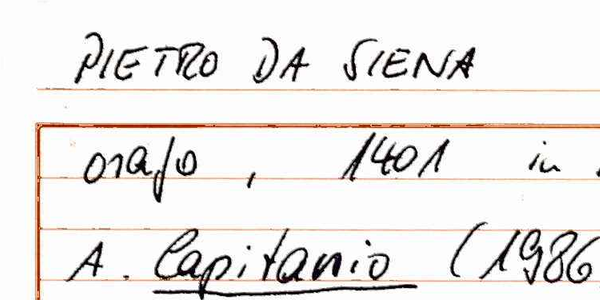 PIETRO DA SIENA
orafo, 1401 in
A. Capitanio (1986